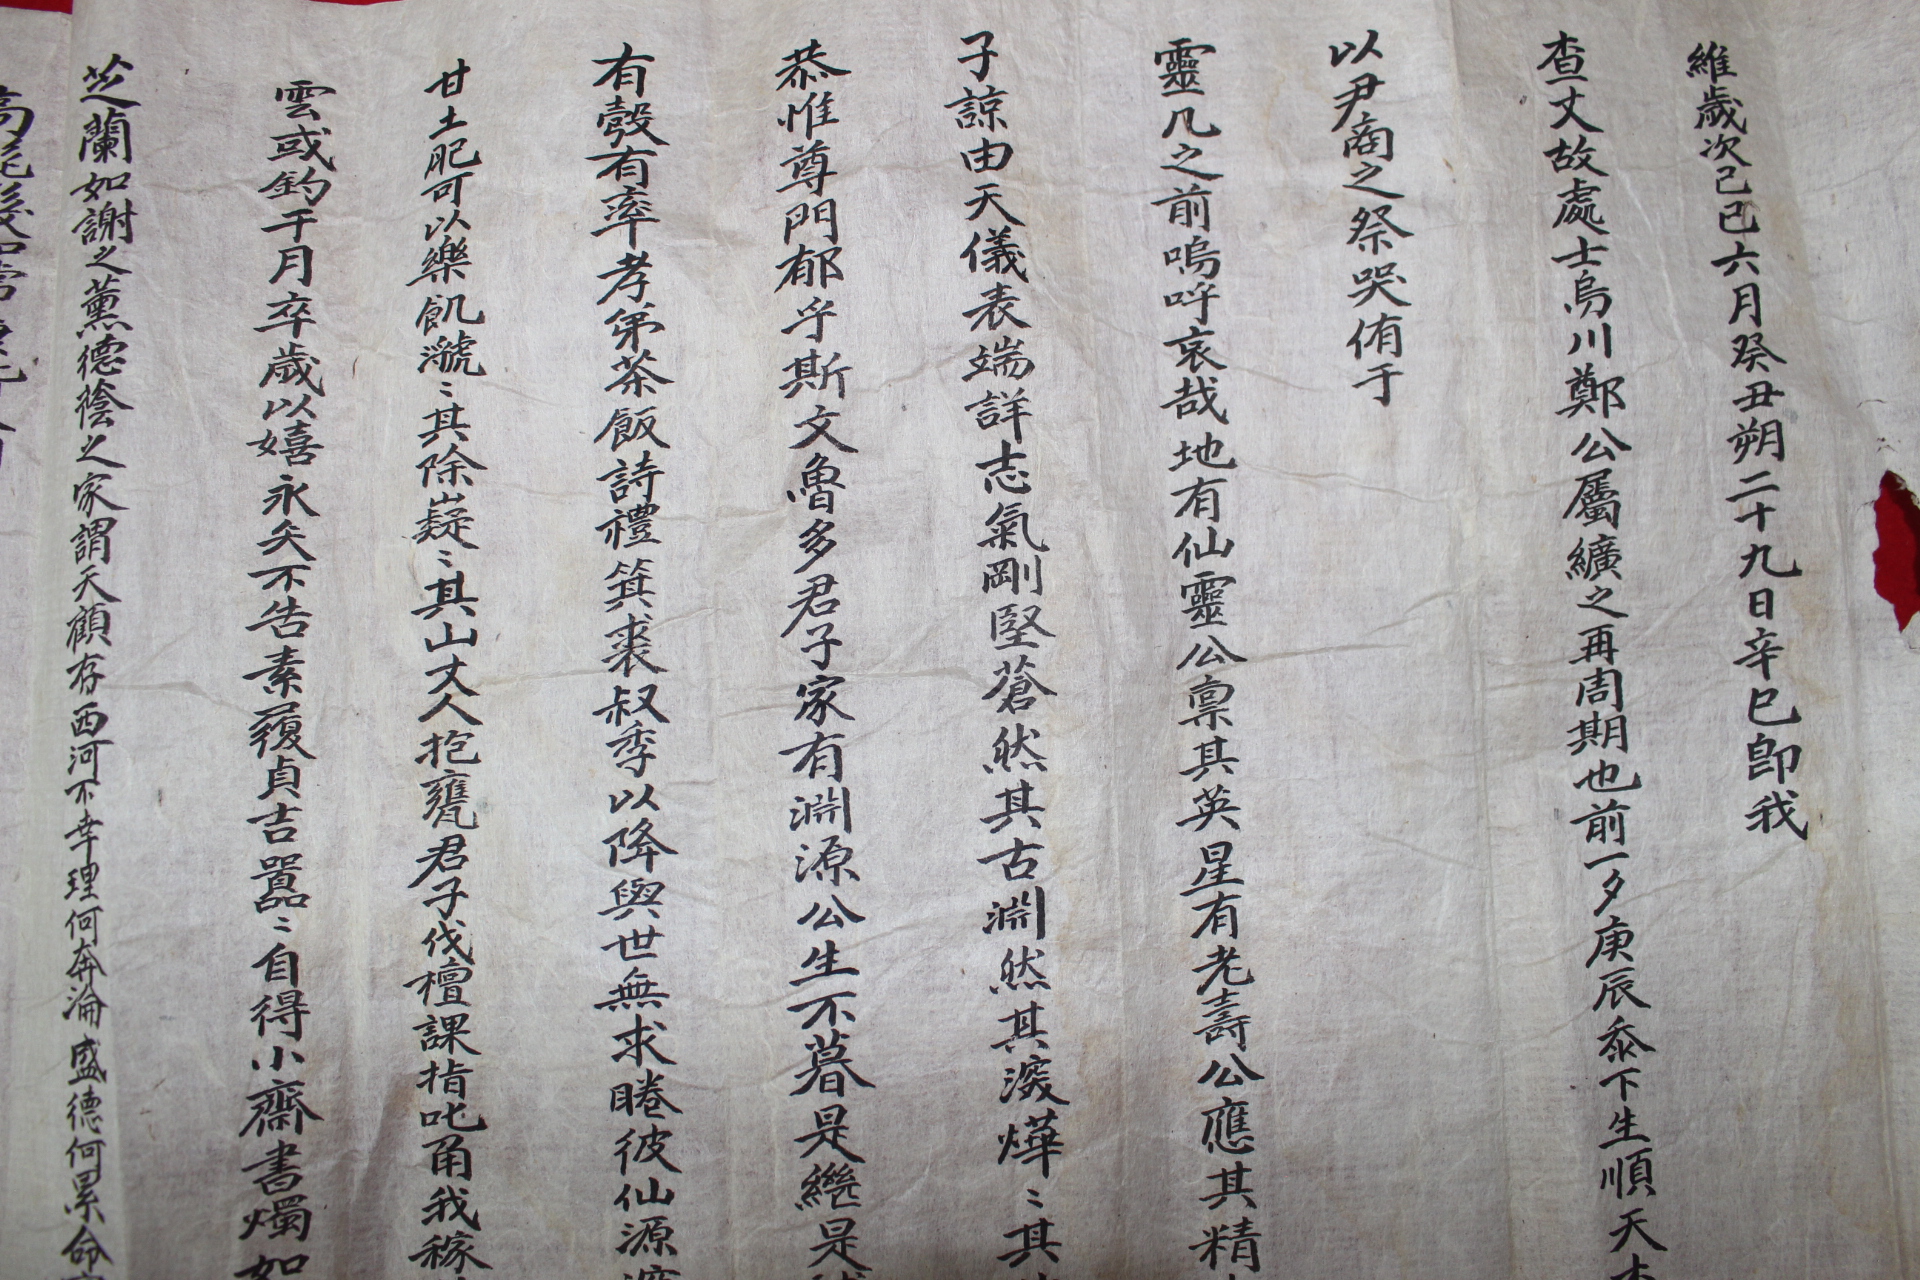 維歲次己巳六月癸丑朔二十九日辛巳卽我
查丈故處士烏川鄭公屬纊之再周期也前一夕庚辰忝下生順天
以尹商之祭哭侑于
靈几之前嗚呼哀哉地有仙靈公稟其英星有老壽公應其精
子諒由天儀表端詳志氣剛堅蒼然其古淵然其深燁〻其
恭惟尊門郁乎斯文魯多君子家有淵源公生不暮是繼是
有㝅有率孝弟茶飯詩禮箕裘叔季以降與世無求睠彼仙源
甘土肥可以樂飢㶁〻其除嶷〻其山丈人抱甕君子伐檀課指叱甬我稼
雲或釣千月卒歲以嬉永矢不告素履貞吉囂〻自得小齋書燭如
芝蘭如謝之薰德陰之家謂天顧存西河不幸理何奔淪盛德何累命